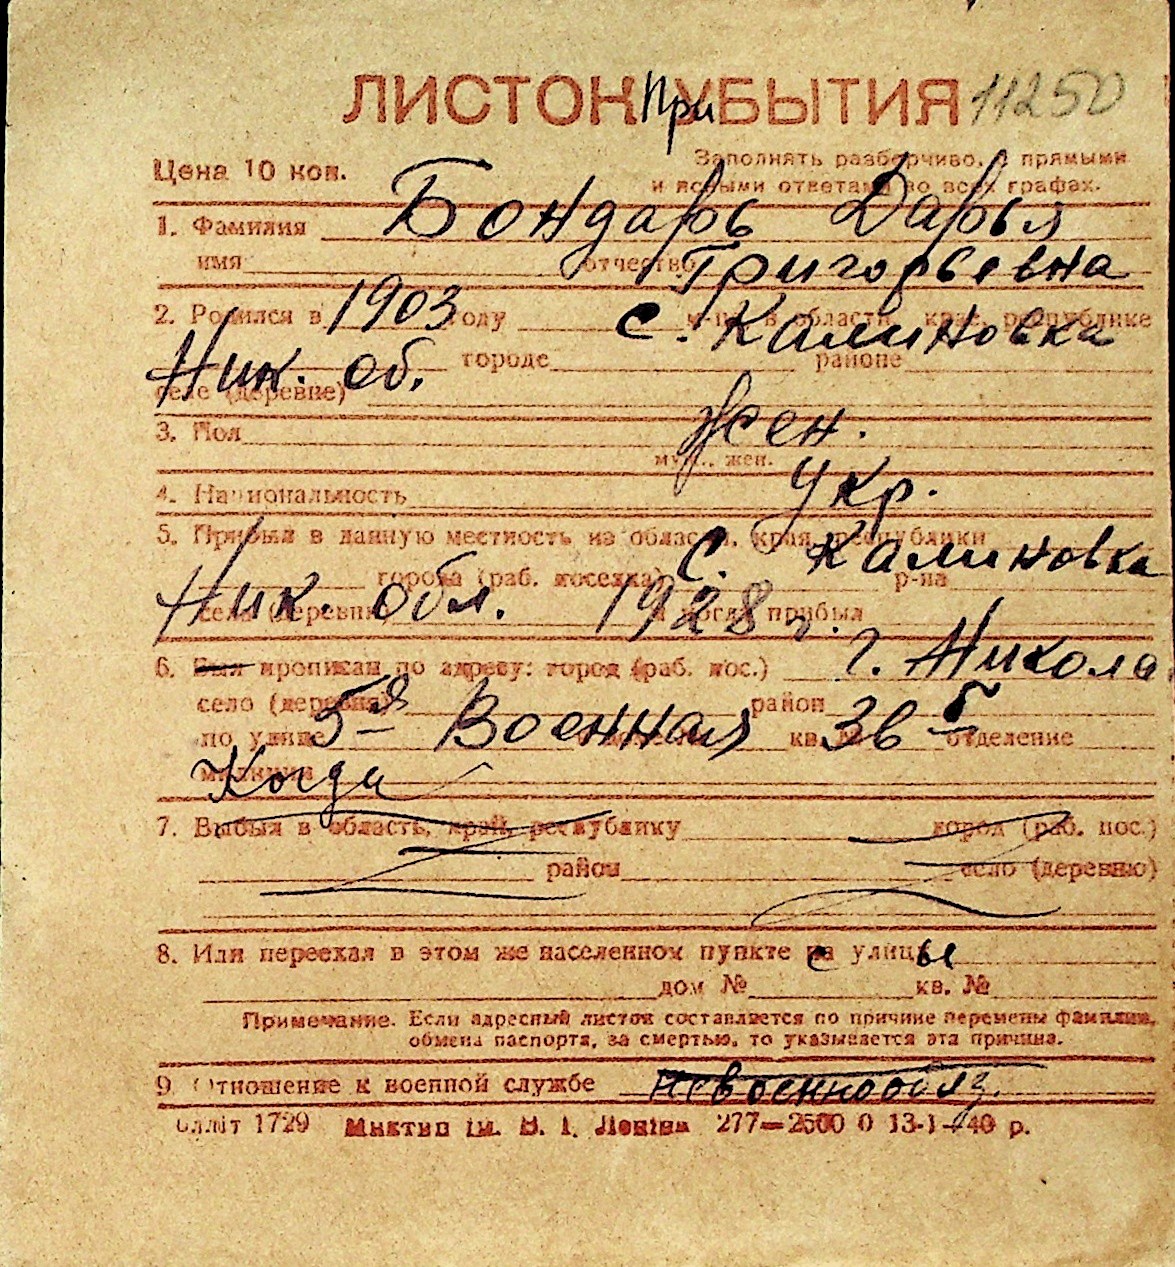 ЛИСТОК При УБЫТИЯ 11250
Цена 10 коп. Заполнять разборчиво, с прямыми
и ясными ответами во всех графах.
1. Фамилия Бондарь Дарья
имя отчество Григорьевна
2. Родился в 1903 году с. Калиновка м-це в области, крае, республике
Ник. об. городе районе
селе (деревне)
3. Пол Жен.
муж., жен.
4. Национальность Укр.
5. Прибыл в данную местность из области, края, республики
города (раб. поселка) с. Калиновка р-на
Ник. обл. села (деревни) 1928 г. и когда прибыл
6. Был прописан по адресу: город (раб. пос.) г. Никола
село (деревня) район
по улице 5-я Военная кв. № 36 б отделение
милиции Когда
7. Выбыл в область, край, республику город (раб. пос.)
район село (деревню)
8. Или переехал в этом же населенном пункте с улицы
дом № кв. №
Примечание. Если адресный листок составляется по причине перемены фамилии,
обмена паспорта, за смертью, то указывается эта причина.
9. Отношение к военной службе Невоеннообяз.
1729 им. В. І. Леніна 277—2500 0 13-1-40 р.